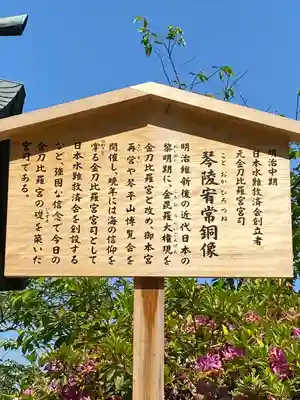 明治中期
日本水難救済会創立者
元金刀比羅宮宮司
琴陵宥常銅像
こと おか ひろ つね
明治維新後の近代日本の
黎明期に、金毘羅大権現を
金刀比羅宮と改め、御本宮
再営や琴平山博覧会を
開催し、晩年には海の信仰を
掌る金刀比羅宮宮司として
日本水難救済会を創設する
など、強固な信念で今日の
金刀比羅宮の礎を築いた
宮司である。